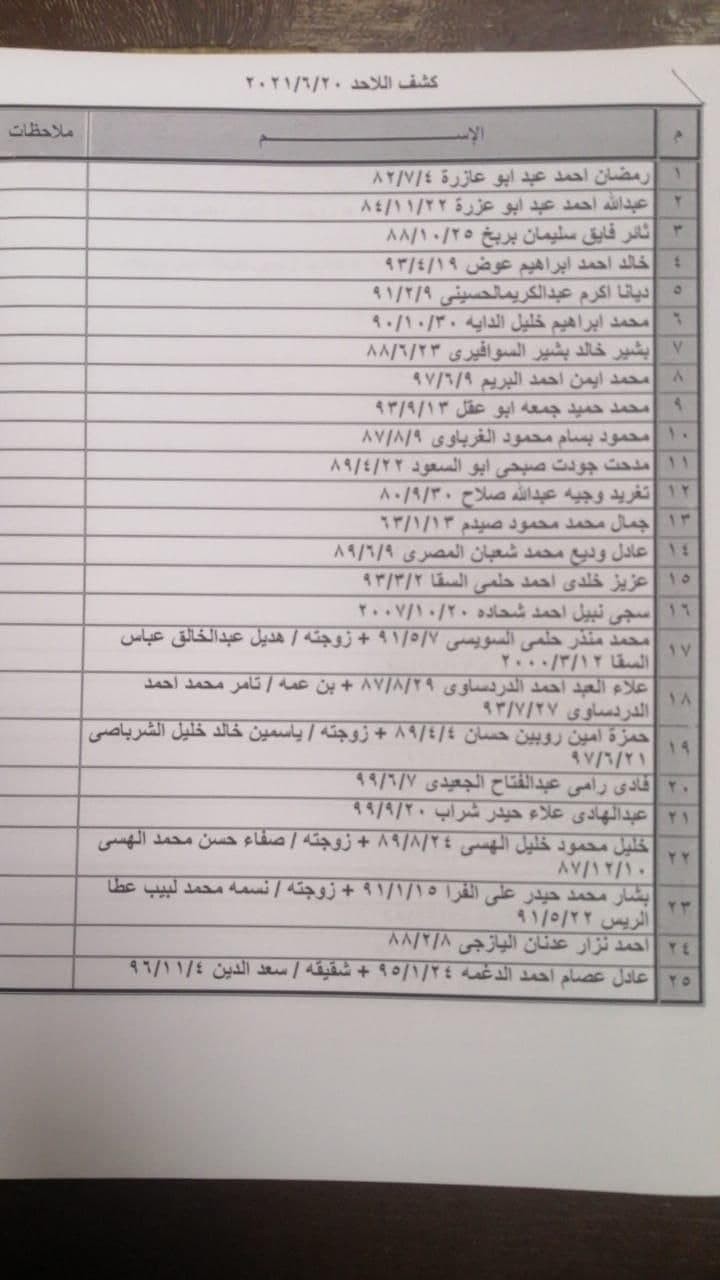 كشف اللاحد ٢٠٢١/٦/٢٠
م الإسم ملاحظات
١ رمضان احمد عبد ابو عازرة ٨٢/٧/٤
٢ عبدالله احمد عبد ابو عزرة ٨٤/١١/٢٢
٣ ثائر فايق سليمان بربخ ٨٨/١٠/٢٥
٤ خالد احمد ابراهيم عوض ٩٣/٤/١٩
٥ ديانا اكرم عبدالكريمالحسينى ٩١/٢/٩
٦ محمد ابراهيم خليل الدايه ٩٠/١٠/٣٠
٧ بشير خالد بشير السوافيرى ٨٨/٦/٢٣
٨ محمد ايمن احمد البريم ٩٧/٦/٩
٩ محمد حميد جمعه ابو عقل ٩٣/٩/١٣
١٠ محمود بسام محمود الغرباوى ٨٧/٨/٩
١١ مدحت جودت صبحى ابو السعود ٨٩/٤/٢٢
١٢ تغريد وجيه عبدالله صلاح ٨٠/٩/٣٠
١٣ جمال محمد محمود صيدم ٦٣/١/١٣
١٤ عادل وديع محمد شعبان المصرى ٨٩/٦/٩
١٥ عزيز خلدى احمد حلمى السقا ٩٣/٣/٢
١٦ سجى نبيل احمد شحاده ٢٠٠٧/١٠/٢٠
١٧ محمد منذر حلمى السويسى ٩١/٥/٧ + زوجته / هديل عبدالخالق عباس
السقا ٢٠٠٠/٣/١٢
١٨ علاء العبد احمد الدردساوى ٨٧/٨/٢٩ + بن عمه / تامر محمد احمد
الدردساوى ٩٣/٧/٢٧
١٩ حمزة امين روبين حسان ٨٩/٤/٤ + زوجته / ياسمين خالد خليل الشرباصى
٩٧/٦/٢١
٢٠ فادى رامى عبدالفتاح الجعيدى ٩٩/٦/٧
٢١ عبدالهادى علاء حيدر شراب ٩٩/٩/٢٠
٢٢ خليل محمود خليل الهسى ٨٩/٨/٢٤ + زوجته / صفاء حسن محمد الهسى
٨٧/١٢/١٠
٢٣ بشار محمد حيدر على الفرا ٩١/١/١٥ + زوجته / نسمه محمد لبيب عطا
الريس ٩١/٥/٢٢
٢٤ احمد نزار عدنان اليازجى ٨٨/٢/٨
٢٥ عادل عصام احمد الدغمه ٩٥/١/٢٤ + شقيقه / سعد الدين ٩٦/١١/٤